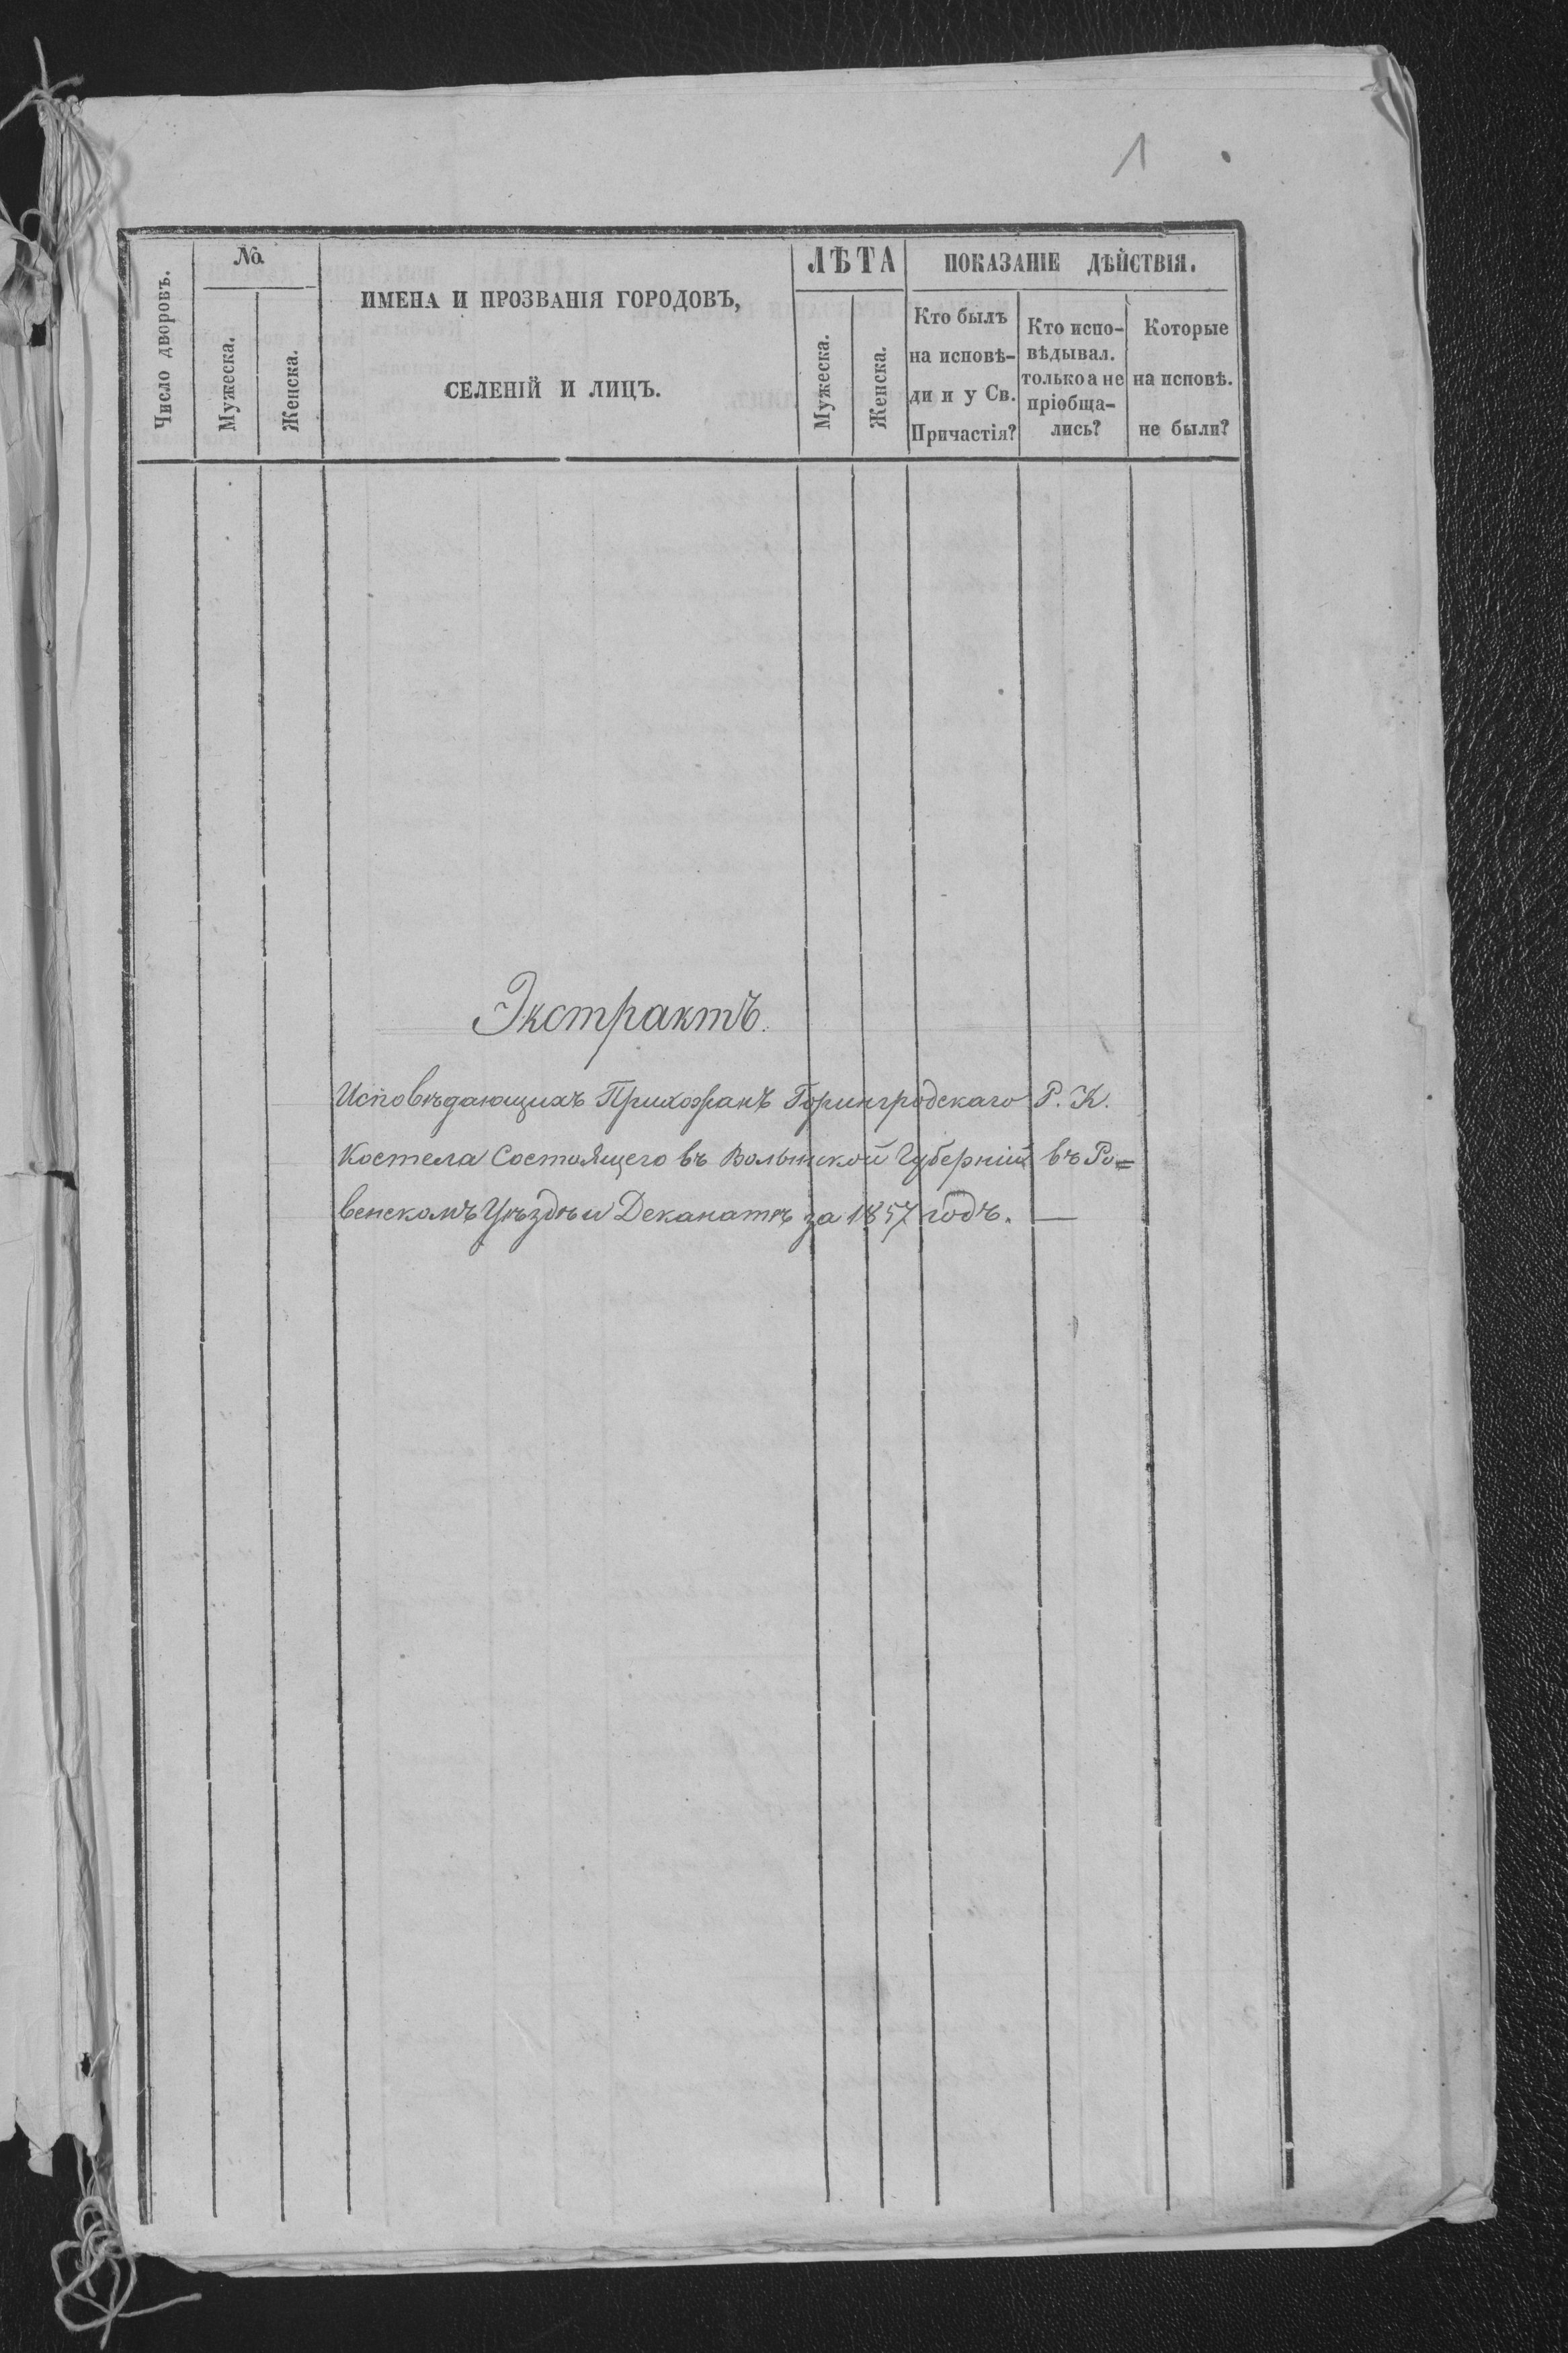 1
Число дворовъ.
№
Мужеска.
Женска.
ИМЕНА И ПРОЗВАНІЯ ГОРОДОВЪ,
СЕЛЕНІЙ И ЛИЦЪ.
ЛѢТА
Мужеска.
Женска.
ПОКАЗАНІЕ ДѢЙСТВІЯ.
Кто былъ
на исповѣ-
ди и у Св.
Причастія?
Кто испо-
вѣдывал.
только а не
пріобща-
лись?
Которые
на исповѣ.
не были?
Экстрактъ.
Исповѣдающихъ Прихожанъ Горинградскаго Р. К.
Костела Состоящего въ Волынской Губерніи въ Ро=
венскомъ Уѣздѣ и Деканатѣ за 1857 годъ. —